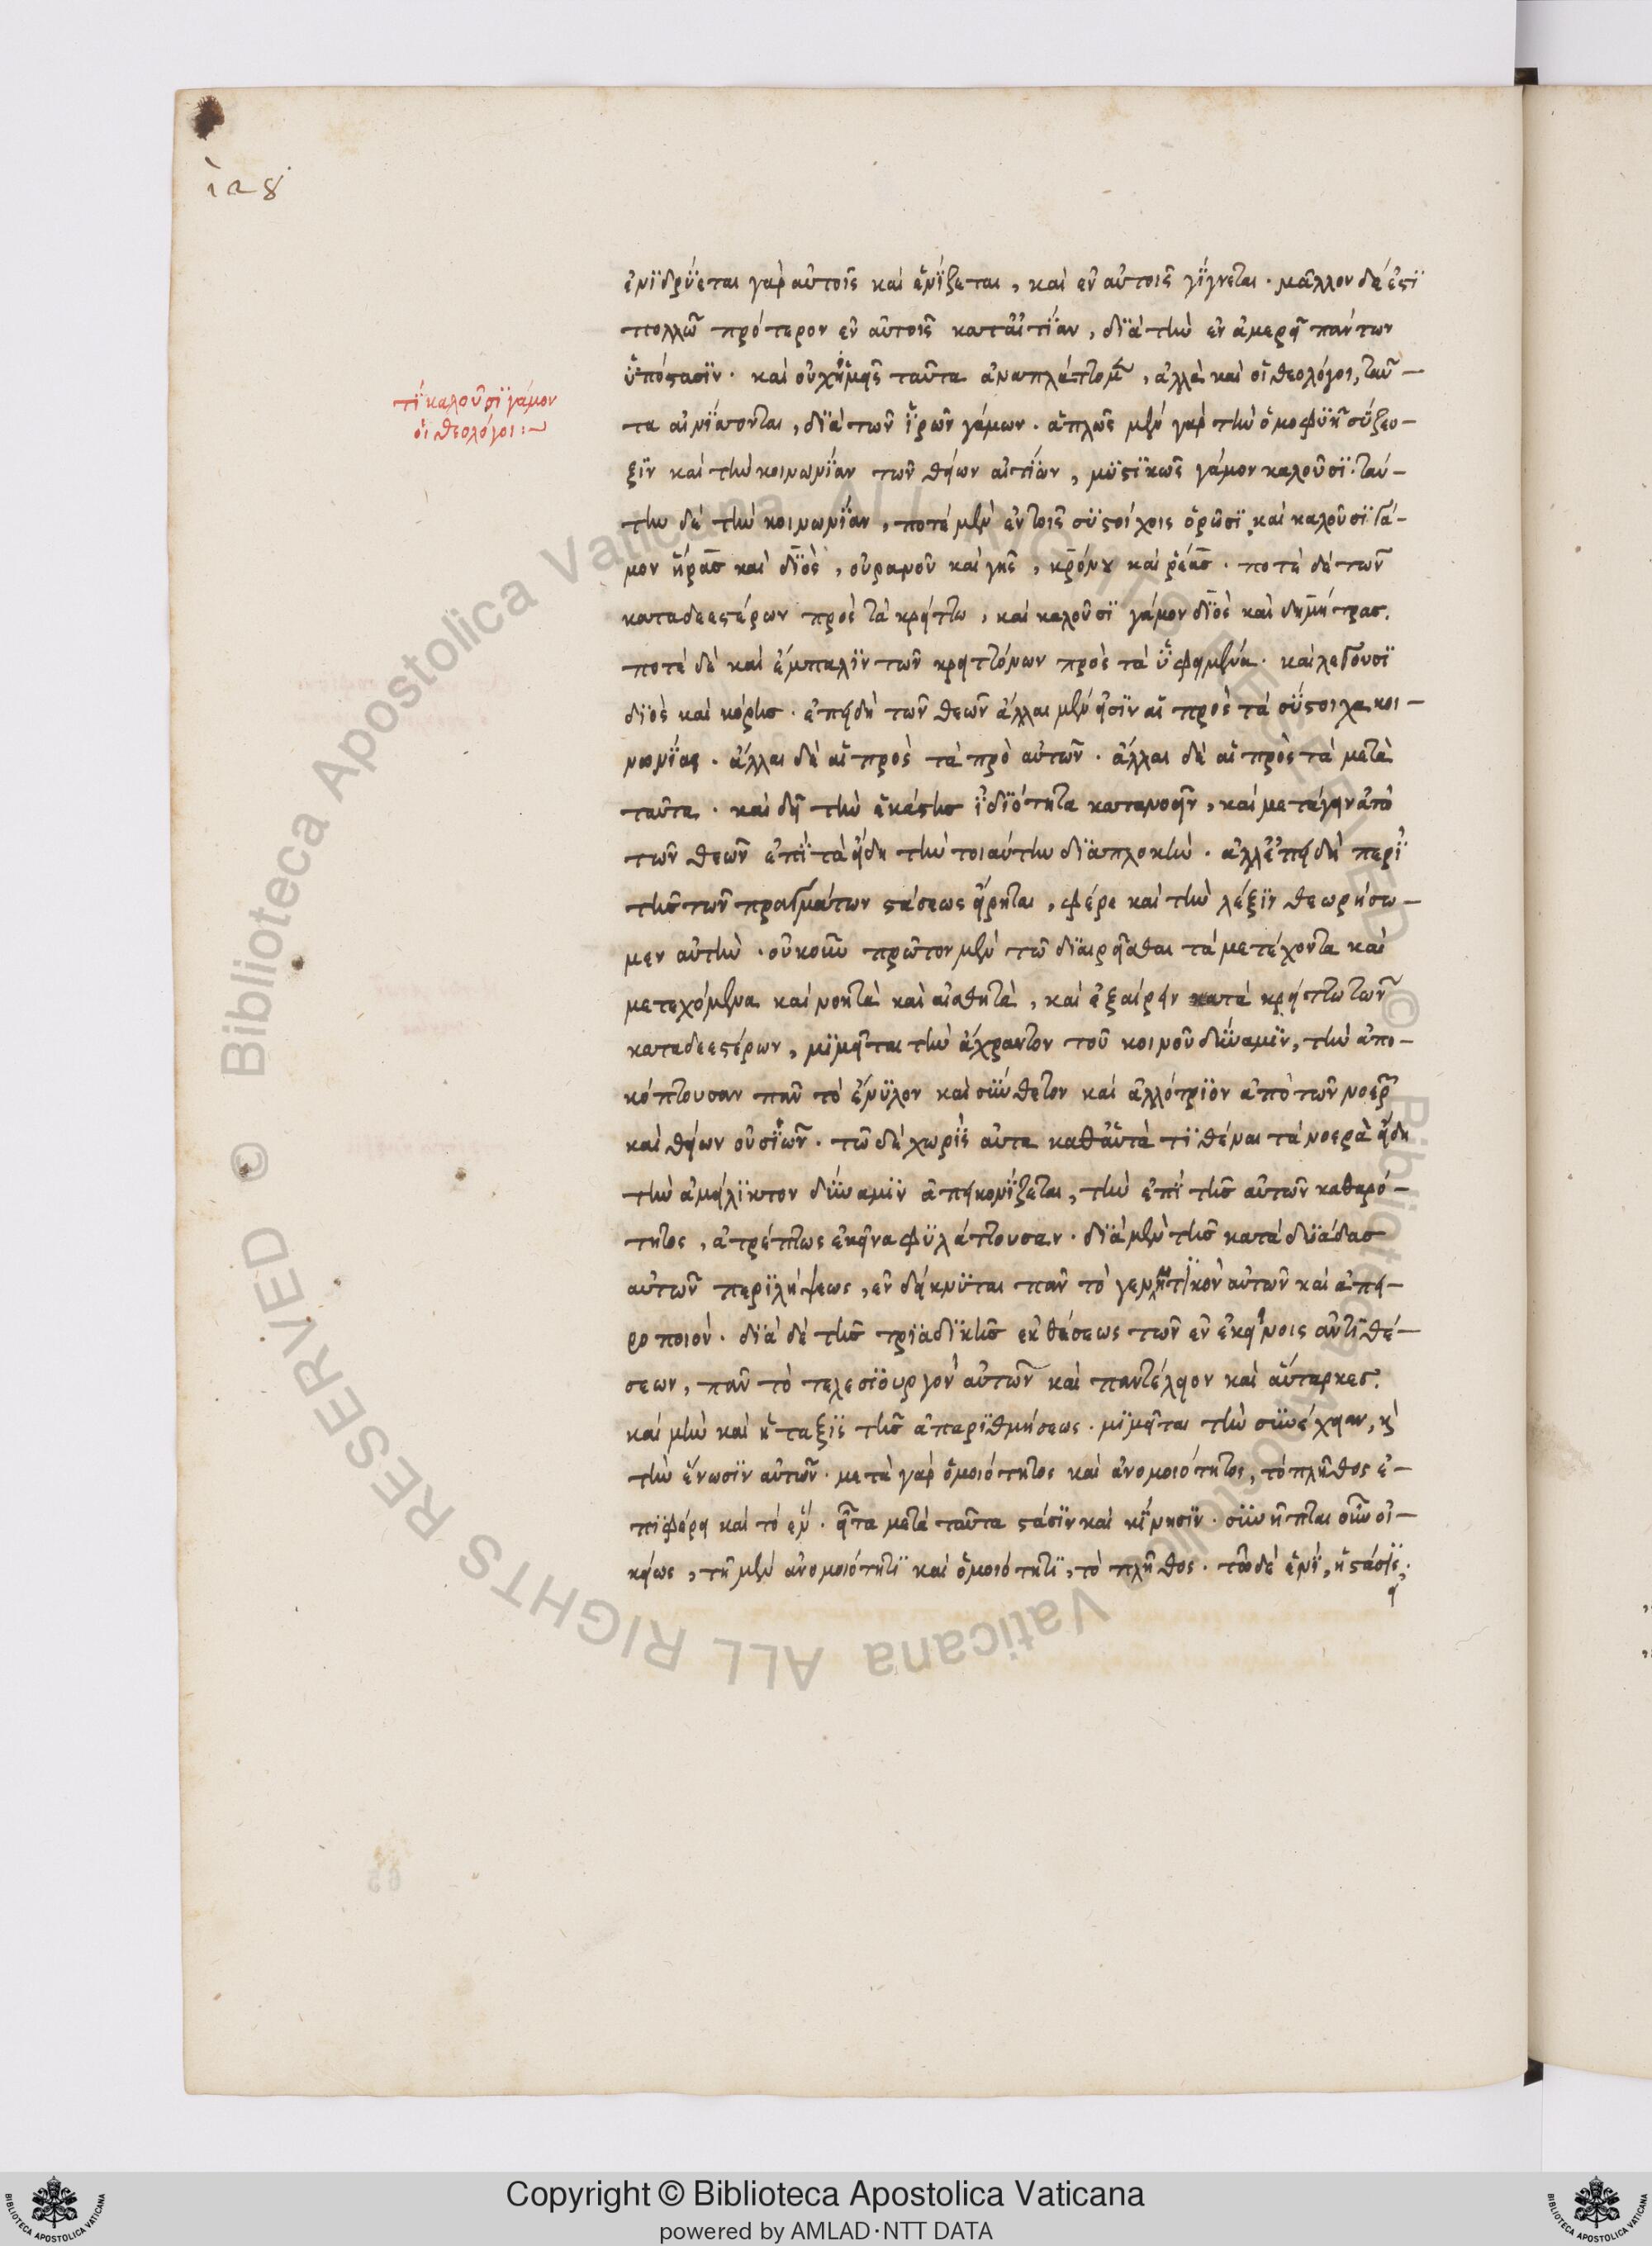 ἐνιδρύεται γὰρ αὐτοῖς καὶ ἑνίζεται, καὶ ἐν αὐτοῖς γίγνεται. μᾶλλον δέ ἐστι
πολλῶ πρότερον ἐν αὐτοῖς κατ' αἰτίαν, διὰ τὴν ἐν ἀμερεῖ πάντων
ὑπόστασιν. καὶ οὐχ ἡμεῖς ταῦτα ἀναπλάττομεν, ἀλλὰ καὶ οἱ θεολόγοι, ταῦ-
τί καλοῦσι γάμον
οἱ θεολόγοι:~
τα αἰνίττονται, διὰ τῶν ἱερῶν γάμων. ἁπλῶς μὲν γὰρ τὴν ὁμοφυῆ σύζευ-
ξιν καὶ τὴν κοινωνίαν τῶν θείων αἰτίων, μυστικῶς γάμον καλοῦσι. ταύ-
την δὲ τὴν κοινωνίαν, ποτὲ μὲν ἐν τοῖς συστοίχοις ὁρῶσι, καὶ καλοῦσι γά-
μον ἥρας καὶ διὸς, οὐρανοῦ καὶ γῆς, κρόνου καὶ ῥέας. ποτὲ δὲ τῶν
καταδεεστέρων πρὸς τὰ κρείττω, καὶ καλοῦσι γάμον διὸς καὶ δημήτρας.
ποτὲ δὲ καὶ ἔμπαλιν τῶν κρειττόνων πρὸς τὰ ὑφειμένα. καὶ λέγουσι
διὸς καὶ κόρης. ἐπειδὴ τῶν θεῶν ἄλλαι μέν εἰσιν αἱ πρὸς τὰ σύστοιχα κοι-
νωνίαι. ἄλλαι δὲ αἱ πρὸς τὰ πρὸ αὐτῶν. ἄλλαι δὲ αἱ πρὸς τὰ μετὰ
ταῦτα. καὶ δεῖ τὴν ἑκάστης ἰδιότητα κατανοεῖν, καὶ μετάγειν ἀπὸ
τῶν θεῶν ἐπὶ τὰ εἴδη τὴν τοιαύτην διαπλοκήν. ἀλλ' ἐπειδὴ περὶ
τῆς τῶν πραγμάτων στάσεως εἴρηται, φέρε καὶ τὴν λέξιν θεωρήσω-
μεν αὐτήν. οὐκοῦν πρῶτον μὲν τῶ διαιρεῖσθαι τὰ μετέχοντα καὶ
μετεχόμενα καὶ νοητὰ καὶ αἰσθητὰ, καὶ ἐξαίρειν κατὰ κρείττω τῶν
καταδεεστέρων, μιμεῖται τὴν ἄχραντον τοῦ κοινοῦ δύναμιν, τὴν ἀπο-
κόπτουσαν πᾶν τὸ ἔνυλον καὶ σύνθετον καὶ ἀλλότριον ἀπὸ τῶν νοερῶν
καὶ θείων οὐσιῶν. τῶ δὲ χωρὶς αὐτὰ καθ' αὑτὰ τιθέναι τὰ νοερὰ εἴδη
τὴν ἀμείλικτον δύναμιν ἀπεικονίζεται, τὴν ἐπὶ τῆς αὐτῶν καθαρό-
τητος, ἀτρέπτως ἐκεῖνα φυλάττουσαν. διὰ μὲν τῆς κατὰ δυάδας
αὐτῶν περιλήψεως, ἐνδείκνυται πᾶν τὸ γεννητικὸν αὐτῶν καὶ ἀπει-
ροποιόν. διὰ δὲ τῆς τριαδικῆς ἐκθέσεως τῶν ἐν ἐκείνοις ἀντιθέ-
σεων, πᾶν τὸ τελεσιουργὸν αὐτῶν καὶ παντέλειον καὶ αὔταρκες.
καὶ μὴν καὶ ἡ τάξις τῆς ἀπαριθμήσεως. μιμεῖται τὴν συνέχειαν, καὶ
τὴν ἕνωσιν αὐτῶν. μετὰ γὰρ ὁμοιότητος καὶ ἀνομοιότητος, τὸ πλῆθος ἐ-
πιφέρει καὶ τὸ ἕν. εἶτα μετὰ ταῦτα στάσιν καὶ κίνησιν. συνῆπται οὖν οἰ-
κείως, τῇ μὲν ἀνομοιότητι καὶ ὁμοιότητι, τὸ πλῆθος. τῶ δὲ ἑνὶ, ἡ στάσις.